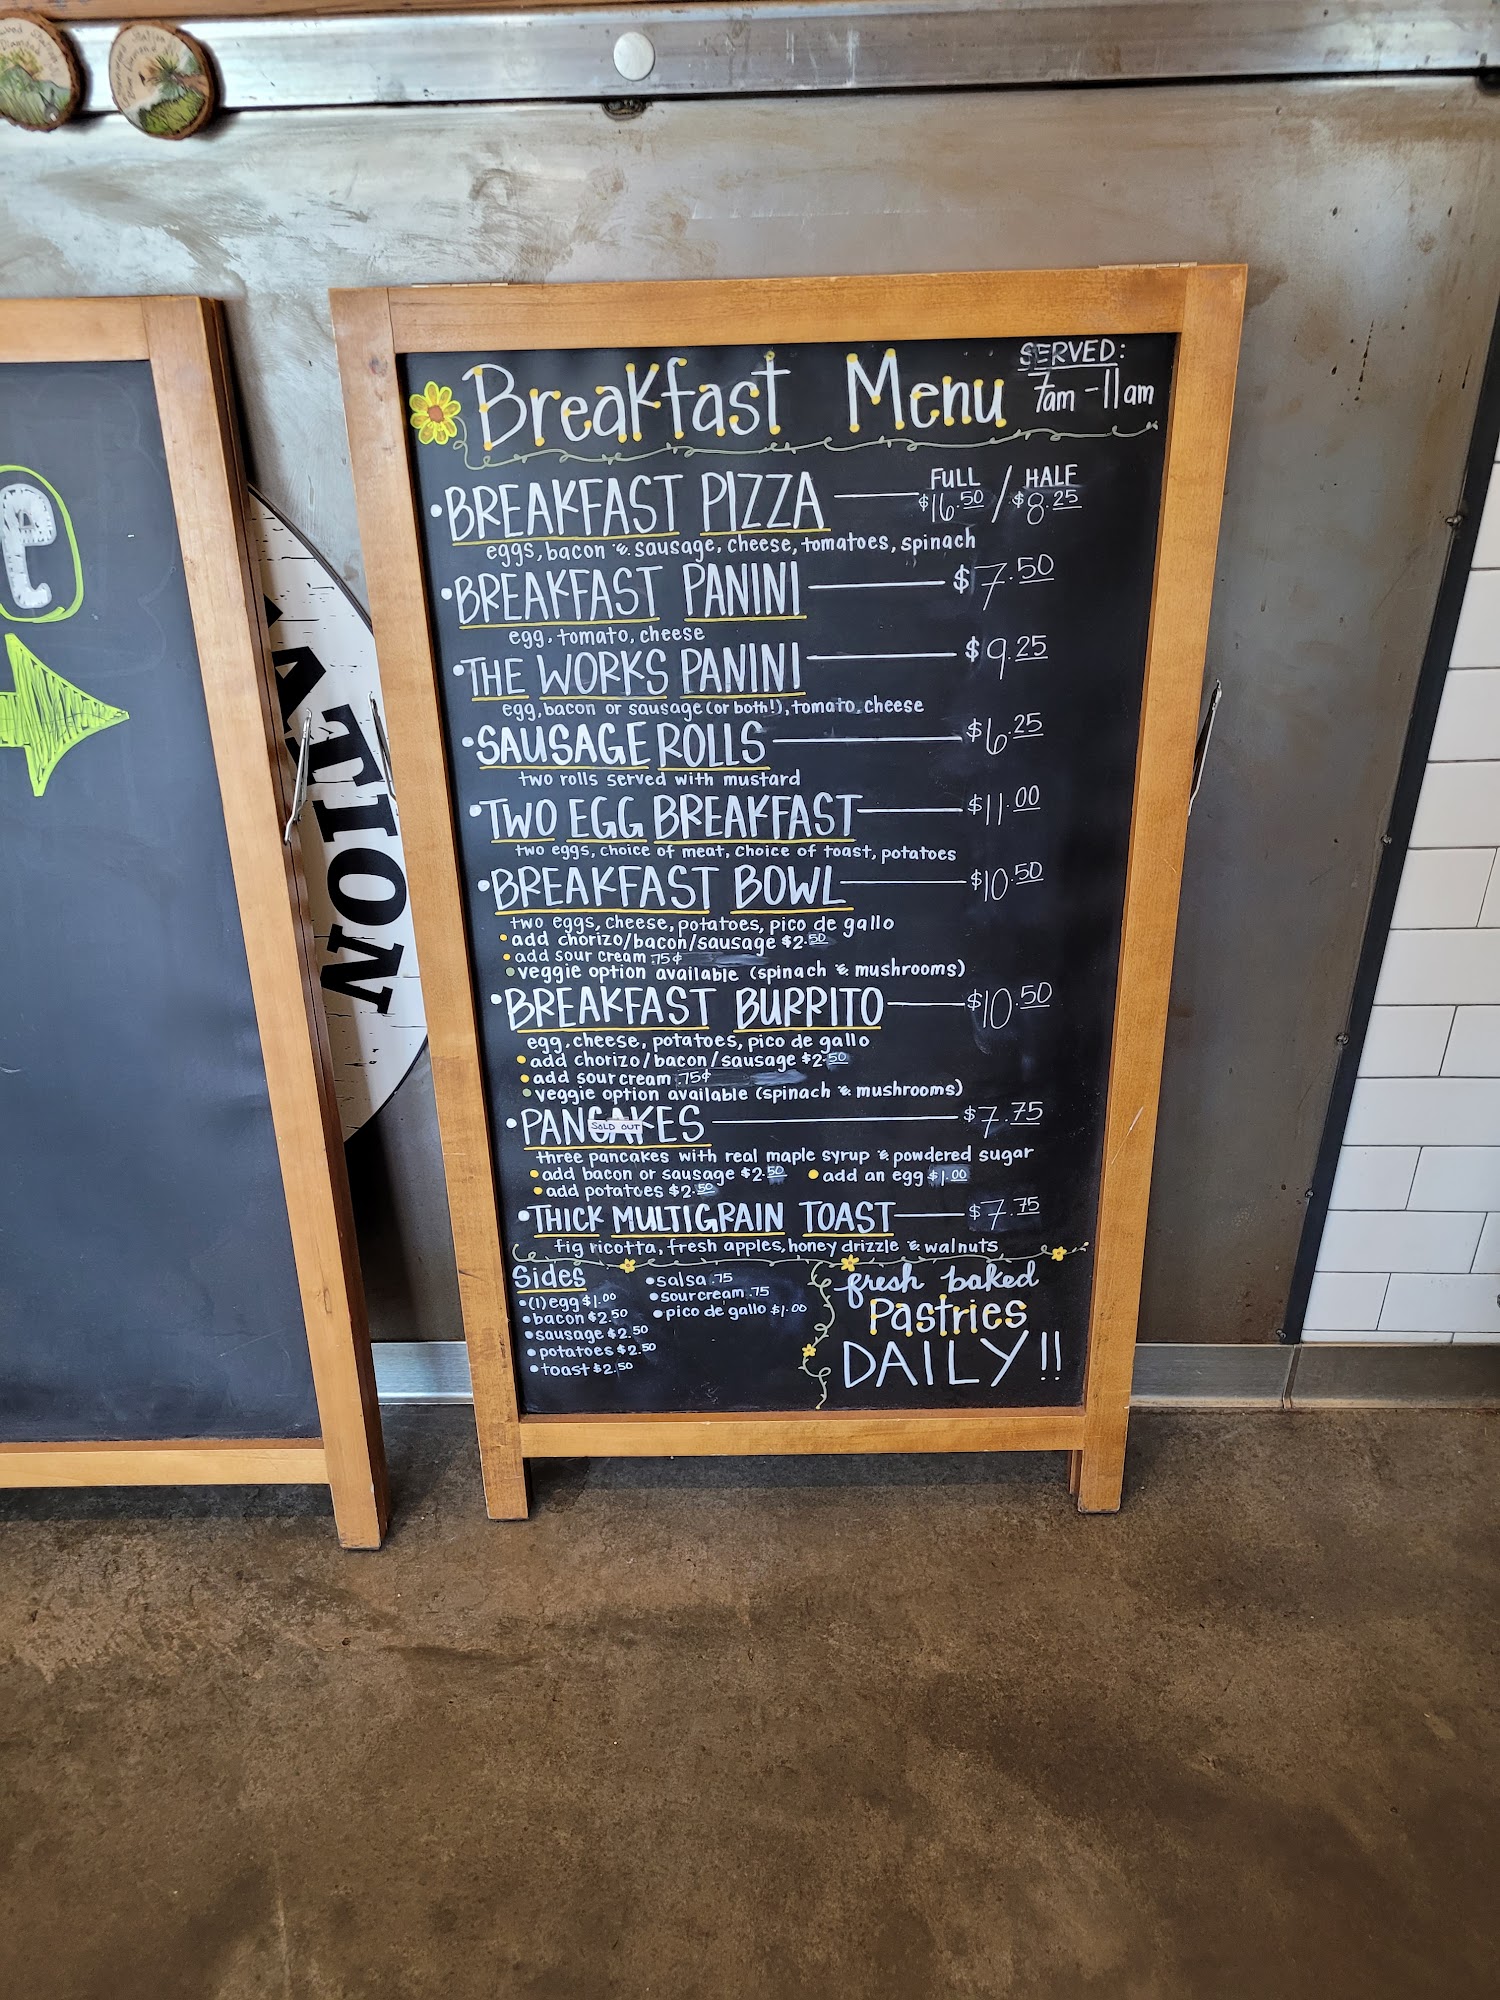 Breakfast Menu
SERVED:
7am-11am
FULL / HALF
•BREAKFAST PIZZA $16.50 / $8.25
eggs, bacon & sausage, cheese, tomatoes, spinach
•BREAKFAST PANINI $7.50
egg, tomato, cheese
•THE WORKS PANINI $9.25
egg, bacon or sausage (or both!), tomato, cheese
•SAUSAGE ROLLS $6.25
two rolls served with mustard
•TWO EGG BREAKFAST $11.00
two eggs, choice of meat, choice of toast, potatoes
•BREAKFAST BOWL $10.50
two eggs, cheese, potatoes, pico de gallo
•add chorizo/bacon/sausage $2.50
•add sour cream .75¢
•veggie option available (spinach & mushrooms)
•BREAKFAST BURRITO $10.50
egg, cheese, potatoes, pico de gallo
•add chorizo/bacon/sausage $2.50
•add sour cream .75¢
•veggie option available (spinach & mushrooms)
•PANCAKES $7.75
SOLD OUT
three pancakes with real maple syrup & powdered sugar
•add bacon or sausage $2.50 •add an egg $1.00
•add potatoes $2.50
•THICK MULTIGRAIN TOAST $7.75
fig ricotta, fresh apples, honey drizzle & walnuts
Sides
•(1) egg $1.00
•bacon $2.50
•sausage $2.50
•potatoes $2.50
•toast $2.50
•salsa .75
•sour cream .75
•pico de gallo $1.00
fresh baked
Pastries
DAILY!!
e
ATION